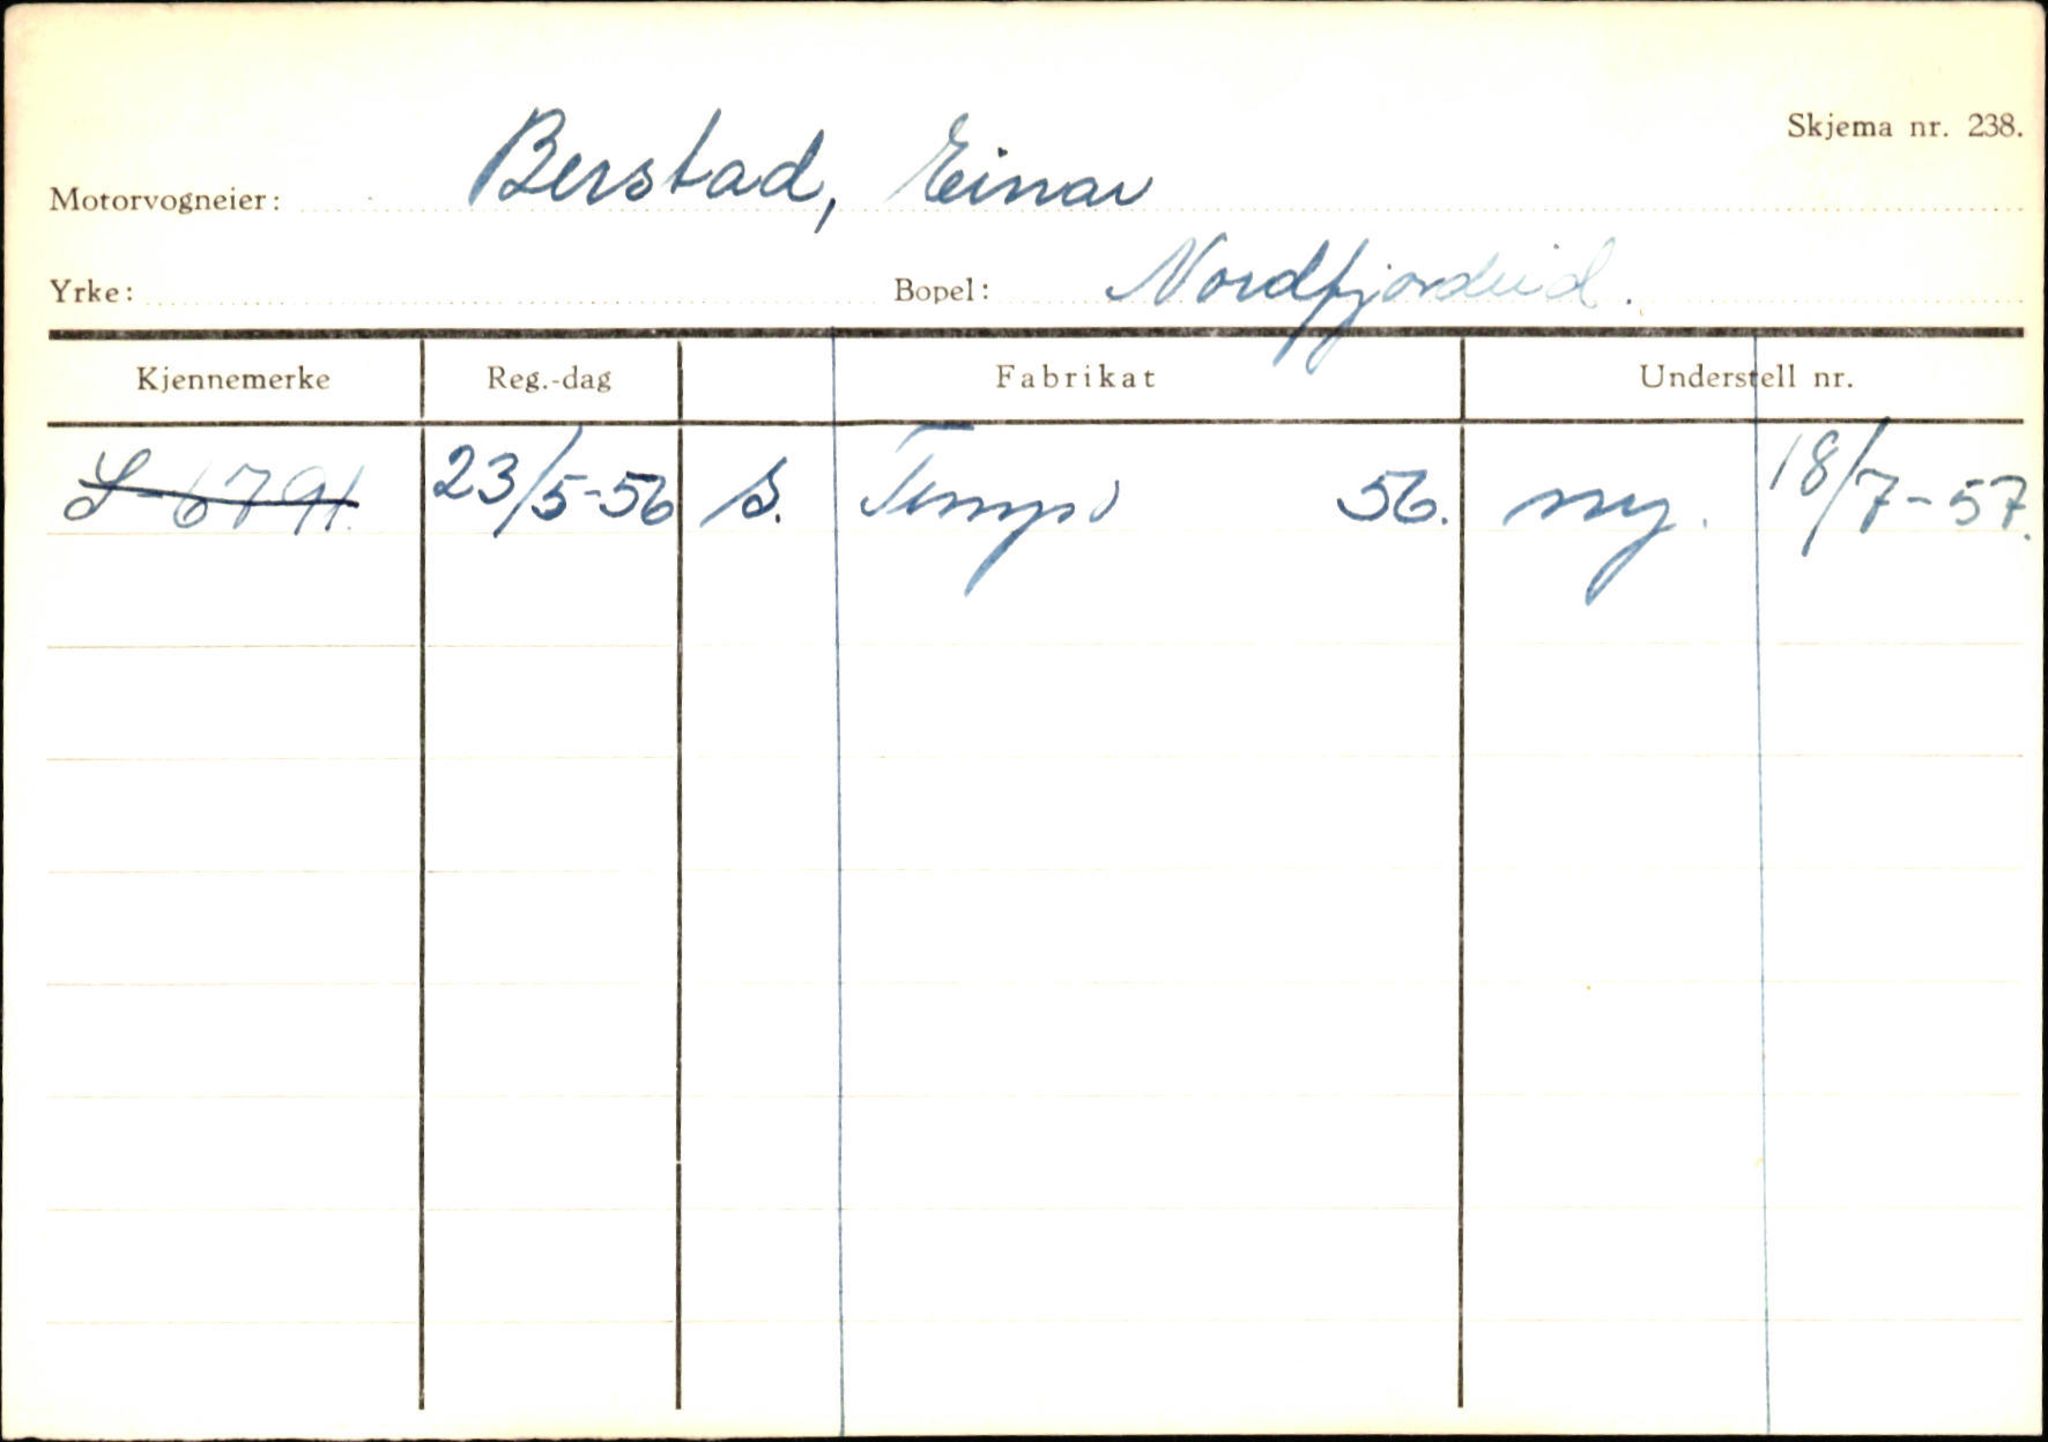 Skjema nr. 238.
Motorvogneier: Berstad, Einar
Yrke: Bopel: Nordfjordeid.
Kjennemerke Reg.-dag Fabrikat Understell nr.
S-6791. 23/5-56 s. Tempo 56. ny. 18/7-57.